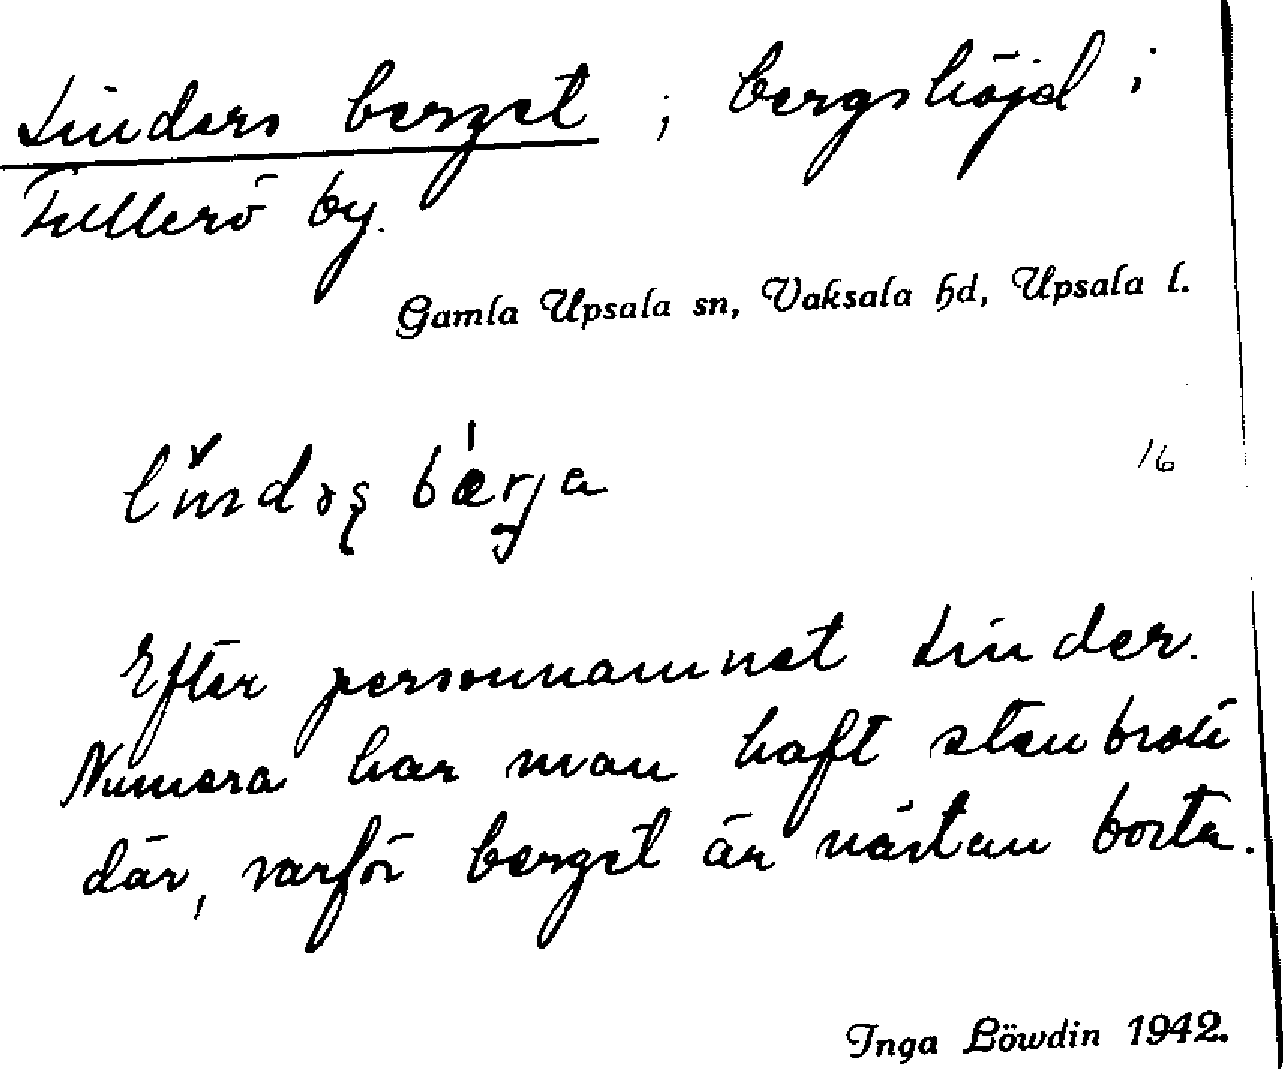 Linders berget; bergshöjd i
Fullerö by.
Gamla Upsala sn, Vaksala hd, Upsala l.
bærja
16
Efter personnamnet Linder.
Numera har man haft stenbrott
där, varför berget är nästan borta.
Inga Löwdin 1942.